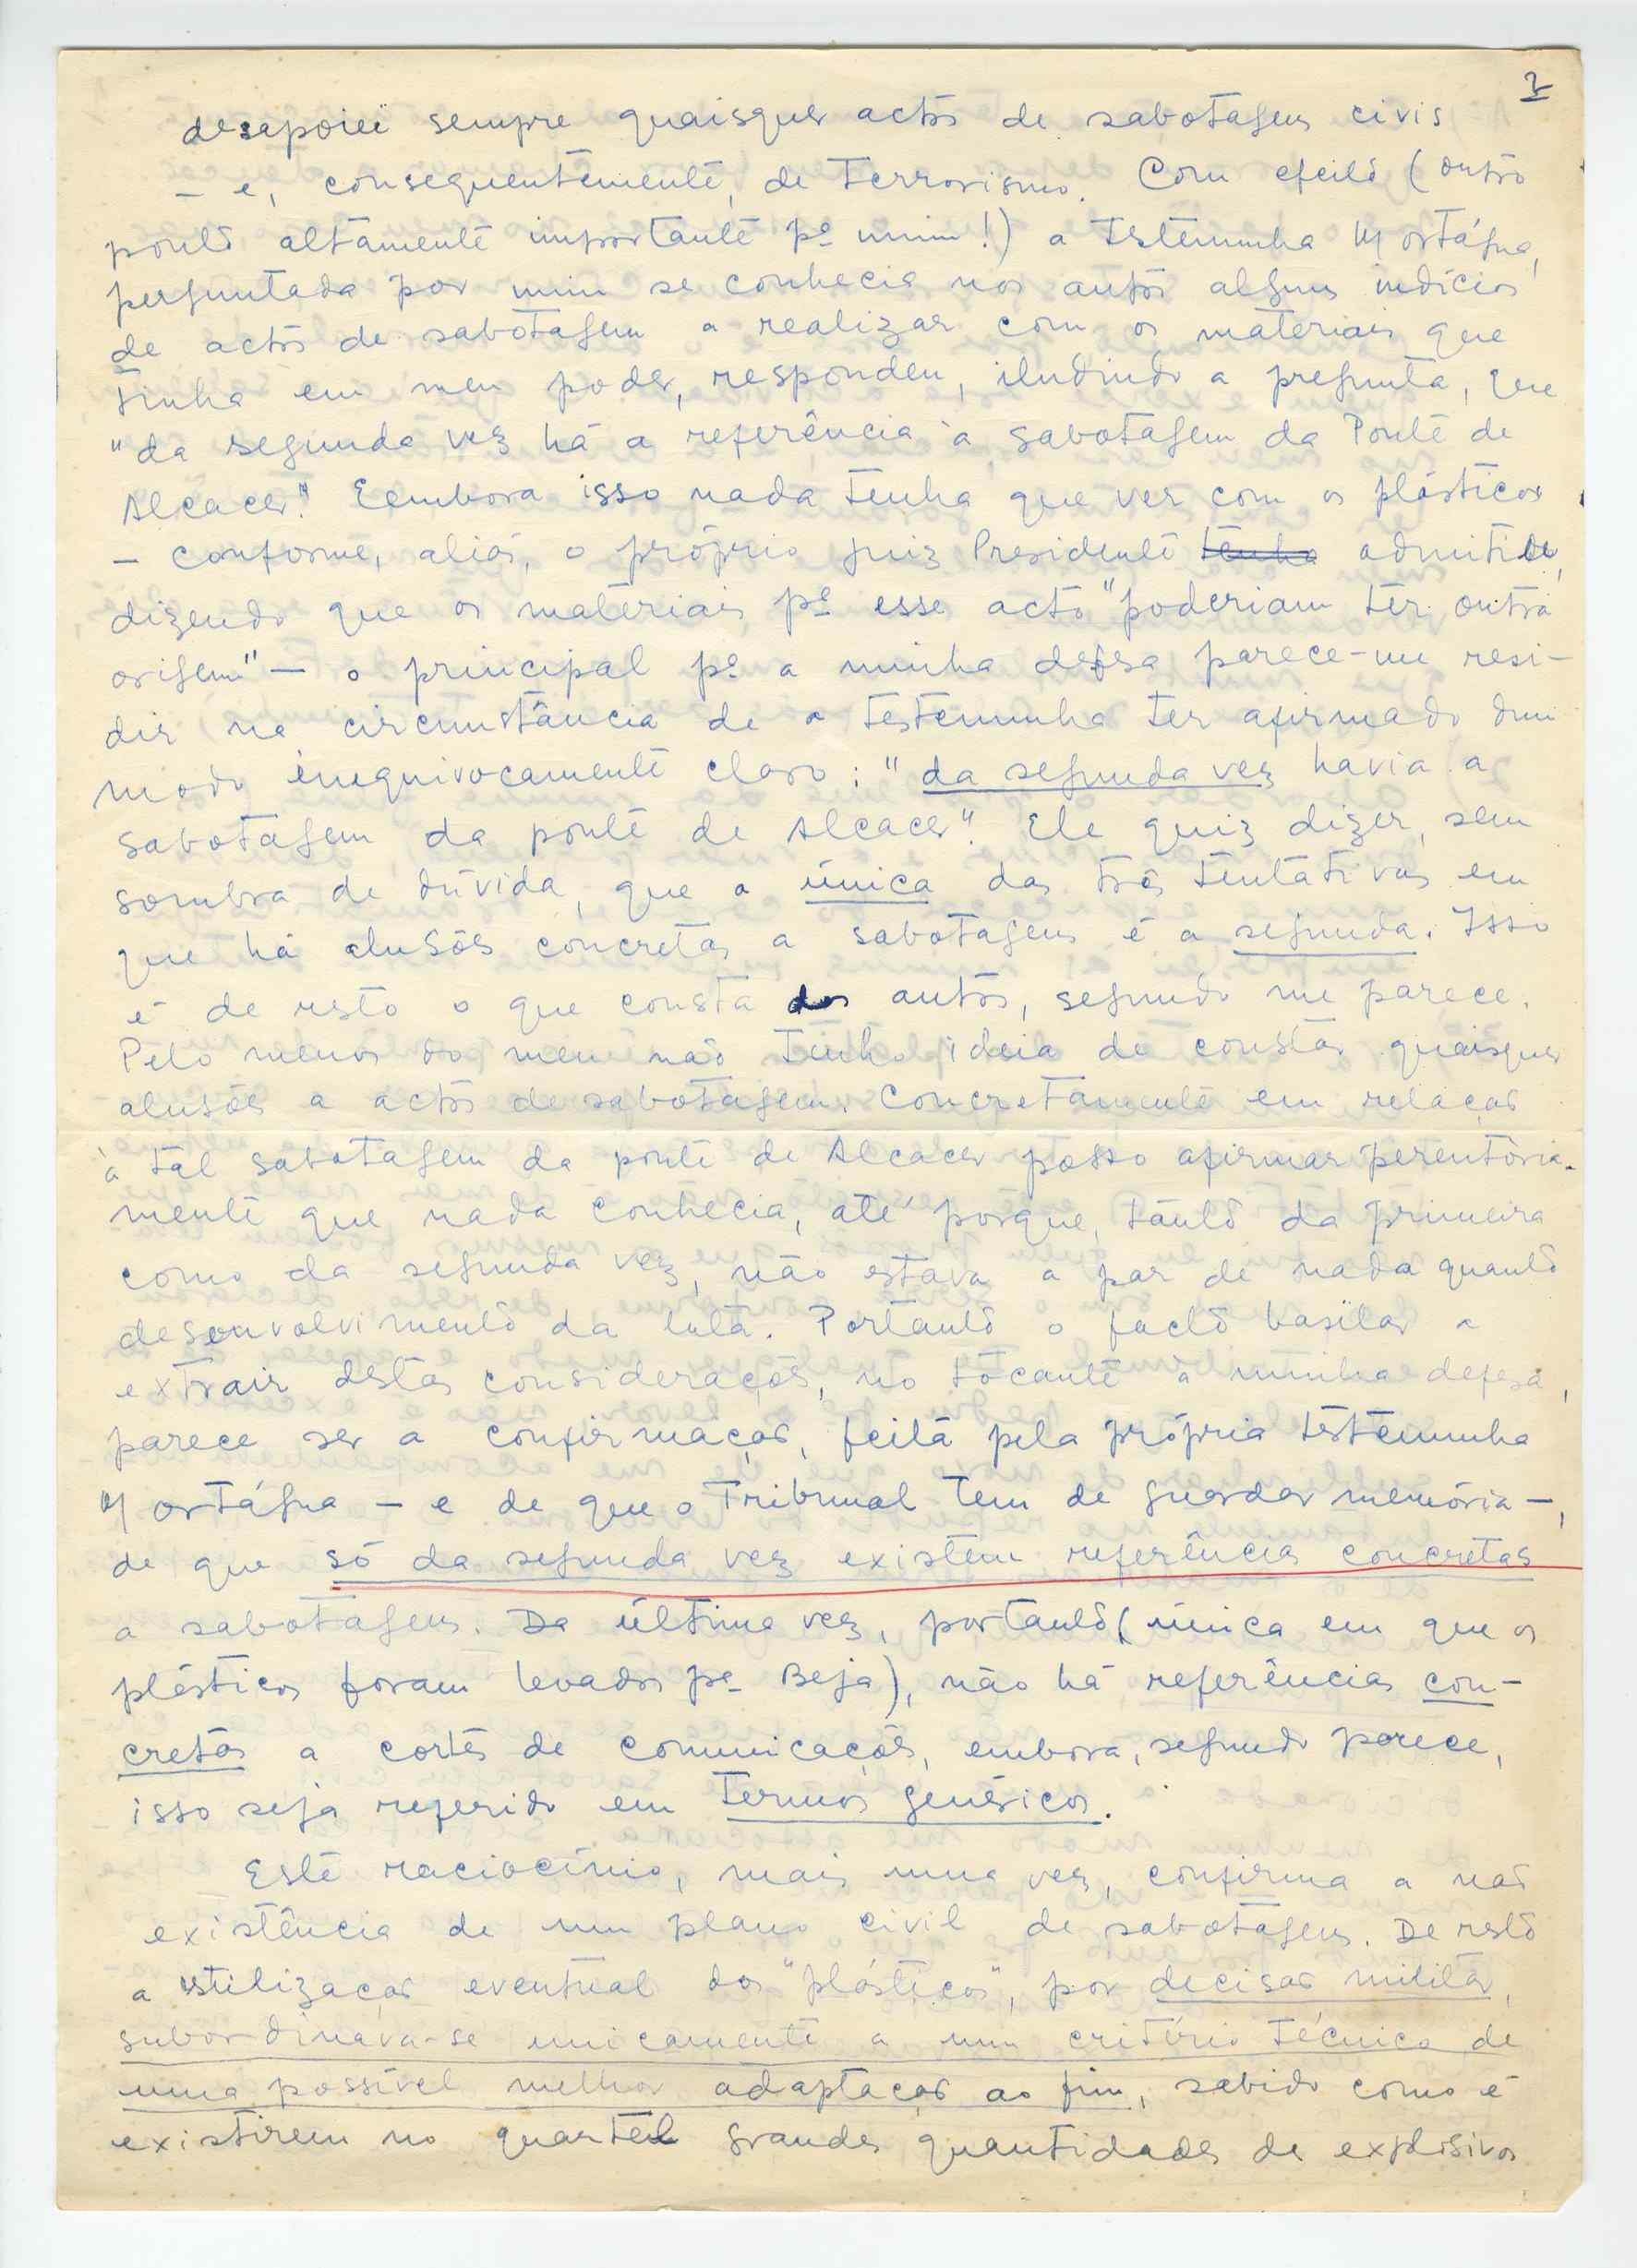 2
desapoiei sempre quaisquer actos de sabotagem civis
– e, consequentemente, de terrorismo. Com efeito (outro
ponto altamente importante pª mim!) a testemunha Mortágua,
perguntada por mim se conhecia nos autos alguns indícios
de actos de sabotagem a realizar com os materiais que
tinha em meu poder, respondeu, iludindo a pregunta, que
"da segunda vez há a referência à sabotagem da Ponte de
Alcacer". Eembora isso nada tenha que ver com os plásticos
– conforme, aliás, o próprio juiz Presidente tenha admitiu,
dizendo que os materiais pª esse acto "poderiam ter outra
origem" – o principal pª a minha defesa parece-me resi-
dir na circunstância de a testemunha ter afirmado dum
modo inequivocamente claro: "da segunda vez havia a
sabotagem da ponte de Alcacer". Ele quiz dizer, sem
sombra de dúvida, que a única das três tentativas em
que há alusões concretas a sabotagem é a segunda. Isso
é de resto o que consta dos autos, segundo me parece.
Pelo menos do meu não tenho ideia de constar quaisquer
alusões a actos de sabotagem. Concretamente em relação
à tal sabotagem da ponte de Alcacer posso afirmar perentòria-
mente que nada conhecia, até porque, tanto da primeira
como da segunda vez, não estava a par de nada quanto
desenvolvimento da luta. Portanto o facto basilar a
extrair destas considerações, no tocante à minha defesa,
parece ser a confirmação, feita pela própria testemunha
Mortágua – e de que o Tribunal tem de guardar memória –,
de que só da segunda vez existem referências concretas
a sabotagem. Da última vez, portanto (única em que os
plásticos foram levados pª Beja), não há referências con-
cretas a cortes de comunicações, embora, segundo parece,
isso seja referido em termos genéricos.
Este raciocínio, mais uma vez, confirma a não
existência de um plano civil de sabotagem. De resto
a utilização eventual dos "plásticos", por decisão militar,
subordinava-se unicamente a um critério técnico de
uma possível melhor adaptação ao fim, sabido como é
existirem no quartel grandes quantidades de explosivos